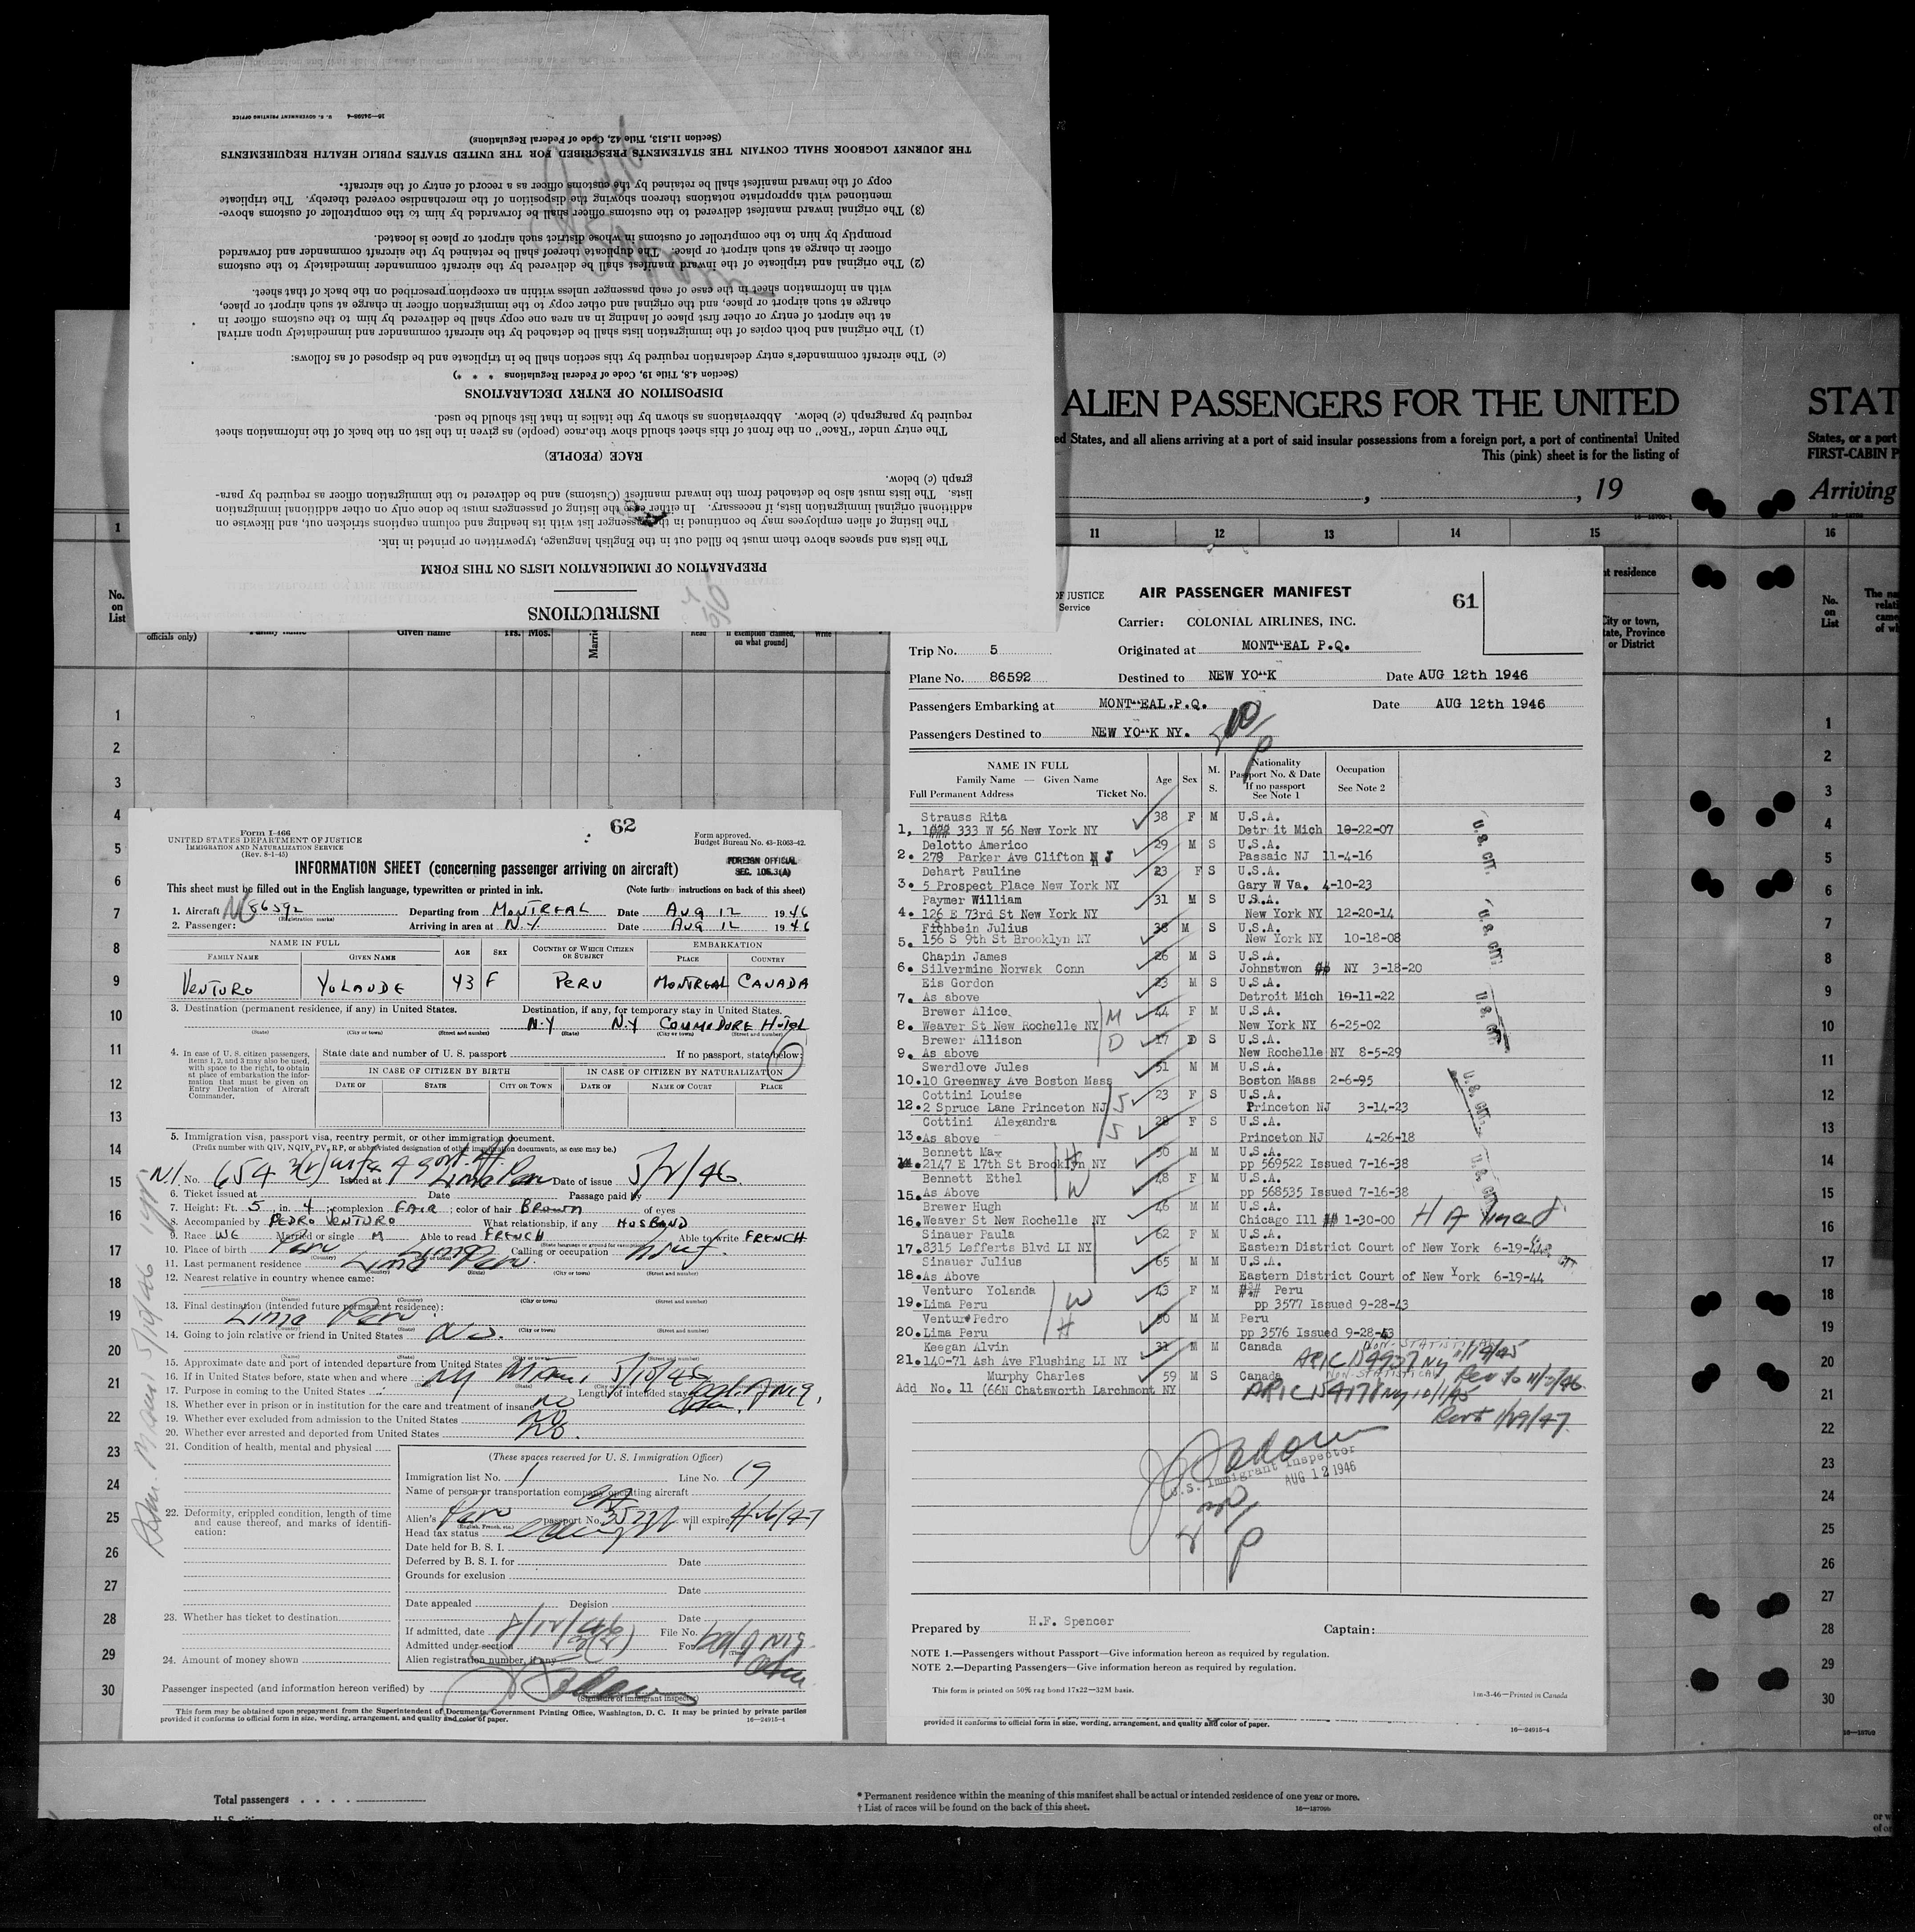 INSTRUCTIONS
PREPARATION OF IMMIGRATION LISTS ON THIS FORM
The lists and spaces above them must be filled out in the English language, typewritten or printed in ink.
The listing of alien employees may be continued in the passenger list with its heading and column captions stricken out, and likewise on
additional original immigration lists, if necessary. In either case the listing of passengers must be done only on other additional immigration
lists. The lists must also be detached from the inward manifest (Customs) and be delivered to the immigration officer as required by para-
graph (c) below.
RACE (PEOPLE)
The entry under "Race" on the front of this sheet should show the race (people) as given in the list on the back of the information sheet
required by paragraph (c) below. Abbreviations as shown by the italics in that list should be used.
DISPOSITION OF ENTRY DECLARATIONS
(Section 4.8, Title 19, Code of Federal Regulations * * *)
(c) The aircraft commander's entry declaration required by this section shall be in triplicate and be disposed of as follows:
(1) The original and both copies of the immigration lists shall be detached by the aircraft commander and immediately upon arrival
at the airport of entry or other first place of landing in an area one copy shall be delivered by him to the customs officer in
charge at such airport or place, and the original and other copy to the immigration officer in charge at such airport or place,
with an information sheet in the case of each passenger unless within an exception prescribed on the back of that sheet.
(2) The original and triplicate of the inward manifest shall be delivered by the aircraft commander immediately to the customs
officer in charge at such airport or place. The duplicate thereof shall be retained by the aircraft commander and forwarded
promptly by him to the comptroller of customs in whose district such airport or place is located.
(3) The original inward manifest delivered to the customs officer shall be forwarded by him to the comptroller of customs above-
mentioned with appropriate notations thereon showing the disposition of the merchandise covered thereby. The triplicate
copy of the inward manifest shall be retained by the customs officer as a record of entry of the aircraft.
THE JOURNEY LOGBOOK SHALL CONTAIN THE STATEMENTS PRESCRIBED FOR THE UNITED STATES PUBLIC HEALTH REQUIREMENTS
(Section 11.513, Title 42, Code of Federal Regulations)
16—24598-4 U. S. GOVERNMENT PRINTING OFFICE
ALIEN PASSENGERS FOR THE UNITED
ed States, and all aliens arriving at a port of said insular possessions from a foreign port, a port of continental United
This (pink) sheet is for the listing of
, , 19
11 12 13 14 15
STAT
States, or a port
FIRST-CABIN P
Arriving
16
No. on List
62
Form I-466
UNITED STATES DEPARTMENT OF JUSTICE
IMMIGRATION AND NATURALIZATION SERVICE
(Rev. 8-1-45)
Form approved.
Budget Bureau No. 43-R063-42.
INFORMATION SHEET (concerning passenger arriving on aircraft)
FOREIGN OFFICIAL
SEC. 106.3(A)
This sheet must be filled out in the English language, typewritten or printed in ink. (Note further instructions on back of this sheet)
1. Aircraft NC 86592 Departing from MONTREAL Date AUG 12 1946
(Registration marks)
2. Passenger: Arriving in area at N.Y. Date AUG 12 1946
NAME IN FULL AGE SEX COUNTRY OF WHICH CITIZEN OR SUBJECT EMBARKATION
FAMILY NAME GIVEN NAME PLACE COUNTRY
VENTURO YOLANDE 43 F PERU MONTREAL CANADA
3. Destination (permanent residence, if any) in United States. Destination, if any, for temporary stay in United States.
N.Y N.Y COMMODORE HOTEL
(State) (City or town) (Street and number) (State) (City or town) (Street and number)
4. In case of U. S. citizen passengers, items 1, 2, and 3 may also be used, with space to the right, to obtain at place of embarkation the information that must be given on Entry Declaration of Aircraft Commander.
State date and number of U. S. passport If no passport, state below:
IN CASE OF CITIZEN BY BIRTH IN CASE OF CITIZEN BY NATURALIZATION
DATE OF STATE CITY OR TOWN DATE OF NAME OF COURT PLACE
5. Immigration visa, passport visa, reentry permit, or other immigration document.
(Prefix number with QIV, NQIV, PV, RP, or abbreviated designation of other immigration documents, as case may be.)
No. 654 Issued at Lima Peru Date of issue 5/2/46
6. Ticket issued at Date Passage paid by
7. Height: Ft. 5 in. 4 ; complexion FAIR ; color of hair BROWN of eyes
8. Accompanied by PEDRO VENTURO What relationship, if any HUSBAND
9. Race WE Married or single M Able to read FRENCH Able to write FRENCH
10. Place of birth Peru Lima Calling or occupation
11. Last permanent residence Lima Peru
12. Nearest relative in country whence came:
(Name) (Country) (City or town) (Street and number)
13. Final destination (intended future permanent residence):
Lima Peru
14. Going to join relative or friend in United States No.
15. Approximate date and port of intended departure from United States
16. If in United States before, state when and where NY Miami 5/10/46
17. Purpose in coming to the United States Length of intended stay
18. Whether ever in prison or in institution for the care and treatment of insane No
19. Whether ever excluded from admission to the United States No
20. Whether ever arrested and deported from United States No.
21. Condition of health, mental and physical
22. Deformity, crippled condition, length of time and cause thereof, and marks of identification:
23. Whether has ticket to destination
24. Amount of money shown
(These spaces reserved for U. S. Immigration Officer)
Immigration list No. 1 Line No. 19
Name of person or transportation company operating aircraft
Alien's Peru passport No. will expire
Head tax status
Date held for B. S. I.
Deferred by B. S. I. for Date
Grounds for exclusion
Date
Date appealed Decision
Date
If admitted, date 8/12/46 File No.
Admitted under section 3(2) For
Alien registration number, if any
Passenger inspected (and information hereon verified) by
(Signature of immigrant inspector)
This form may be obtained upon prepayment from the Superintendent of Documents, Government Printing Office, Washington, D. C. It may be printed by private parties
provided it conforms to official form in size, wording, arrangement, and quality and color of paper.
16—24915-4
OF JUSTICE
Service
AIR PASSENGER MANIFEST
61
Carrier: COLONIAL AIRLINES, INC.
Trip No. 5 Originated at MONT EAL P.Q.
Plane No. 86592 Destined to NEW YO K Date AUG 12th 1946
Passengers Embarking at MONT EAL.P.Q. Date AUG 12th 1946
Passengers Destined to NEW YO K NY.
NAME IN FULL
Family Name — Given Name
Full Permanent Address Ticket No.
Age Sex M. S. Nationality Passport No. & Date If no passport See Note 1 Occupation See Note 2
Strauss Rita 38 F M U.S.A.
1, 333 W 56 New York NY Detroit Mich 10-22-07
Delotto Americo 29 M S U.S.A.
2. 278 Parker Ave Clifton N J Passaic NJ 11-4-16
Dehart Pauline 23 F S U.S.A.
3. 5 Prospect Place New York NY Gary W Va. 4-10-23
Paymer William 31 M S U.S.A.
4. 126 E 73rd St New York NY New York NY 12-20-14
Fithbein Julius 38 M S U.S.A.
5. 156 S 9th St Brooklyn NY New York NY 10-18-08
Chapin James 26 M S U.S.A.
6. Silvermine Norwak Conn Johnstwon NY 3-18-20
Eis Gordon 23 M S U.S.A.
7. As above Detroit Mich 10-11-22
Brewer Alice. 44 F M U.S.A.
8. Weaver St New Rochelle NY M New York NY 6-25-02
Brewer Allison 17 D S U.S.A.
9. As above D New Rochelle NY 8-5-29
Swerdlove Jules 51 M M U.S.A.
10. 10 Greenway Ave Boston Mass Boston Mass 2-6-95
Cottini Louise 23 F S U.S.A.
12. 2 Spruce Lane Princeton NJ S Princeton NJ 3-14-23
Cottini Alexandra 28 F S U.S.A.
13. As above S Princeton NJ 4-26-18
Bennett Max 50 M M U.S.A.
14. 2147 E 17th St Brooklyn NY H pp 569522 Issued 7-16-38
Bennett Ethel 48 F M U.S.A.
15. As Above W pp 568535 Issued 7-16-38
Brewer Hugh 46 M M U.S.A.
16. Weaver St New Rochelle NY Chicago Ill 1-30-00
Sinauer Paula 62 F M U.S.A.
17. 8315 Lefferts Blvd LI NY Eastern District Court of New York 6-19-44
Sinauer Julius 65 M M U.S.A.
18. As Above Eastern District Court of New York 6-19-44
Venturo Yolanda 43 F M Peru
19. Lima Peru W pp 3577 Issued 9-28-43
Ventur Pedro 50 M M Peru
20. Lima Peru H pp 3576 Issued 9-28-43
Keegan Alvin 31 M M Canada
21. 140-71 Ash Ave Flushing LI NY
Murphy Charles 59 M S Canada
Add No. 11 (66N Chatsworth Larchmont NY
NON-STATISTICAL
U.S. CIT.
U.S. CIT.
U.S. CIT.
U.S. CIT.
U.S. CIT.
U.S. Immigrant Inspector
AUG 12 1946
Prepared by H.F. Spencer Captain:
NOTE 1.—Passengers without Passport—Give information hereon as required by regulation.
NOTE 2.—Departing Passengers—Give information hereon as required by regulation.
This form is printed on 50% rag bond 17x22—32M basis.
1m-3-46—Printed in Canada
provided it conforms to official form in size, wording, arrangement, and quality and color of paper.
16—24915-4
Total passengers
* Permanent residence within the meaning of this manifest shall be actual or intended residence of one year or more.
† List of races will be found on the back of this sheet.